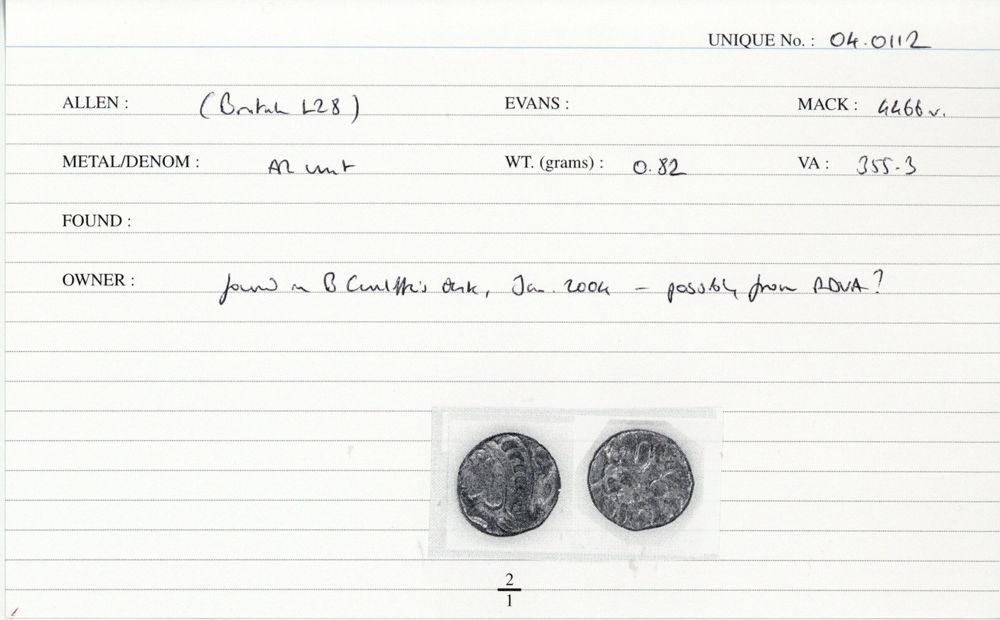 UNIQUE No. : 04.0112
ALLEN : (British L28) EVANS : MACK : 446b v.
METAL/DENOM : AR unit WT. (grams) : 0.82 VA : 355-3
FOUND :
OWNER : found in B Cunliffe's desk, Jan. 2004 - possibly from RDVA?
2
1